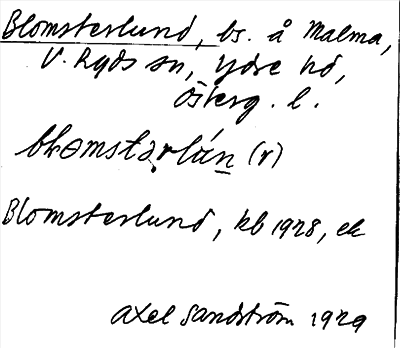 Blomsterlund, bs. å Malma,
V. Ryds sn, Ydre hd,
Österg. l.
blomstərlún (r)
Blomsterlund, kb 1928, ek
Axel Sandström 1929